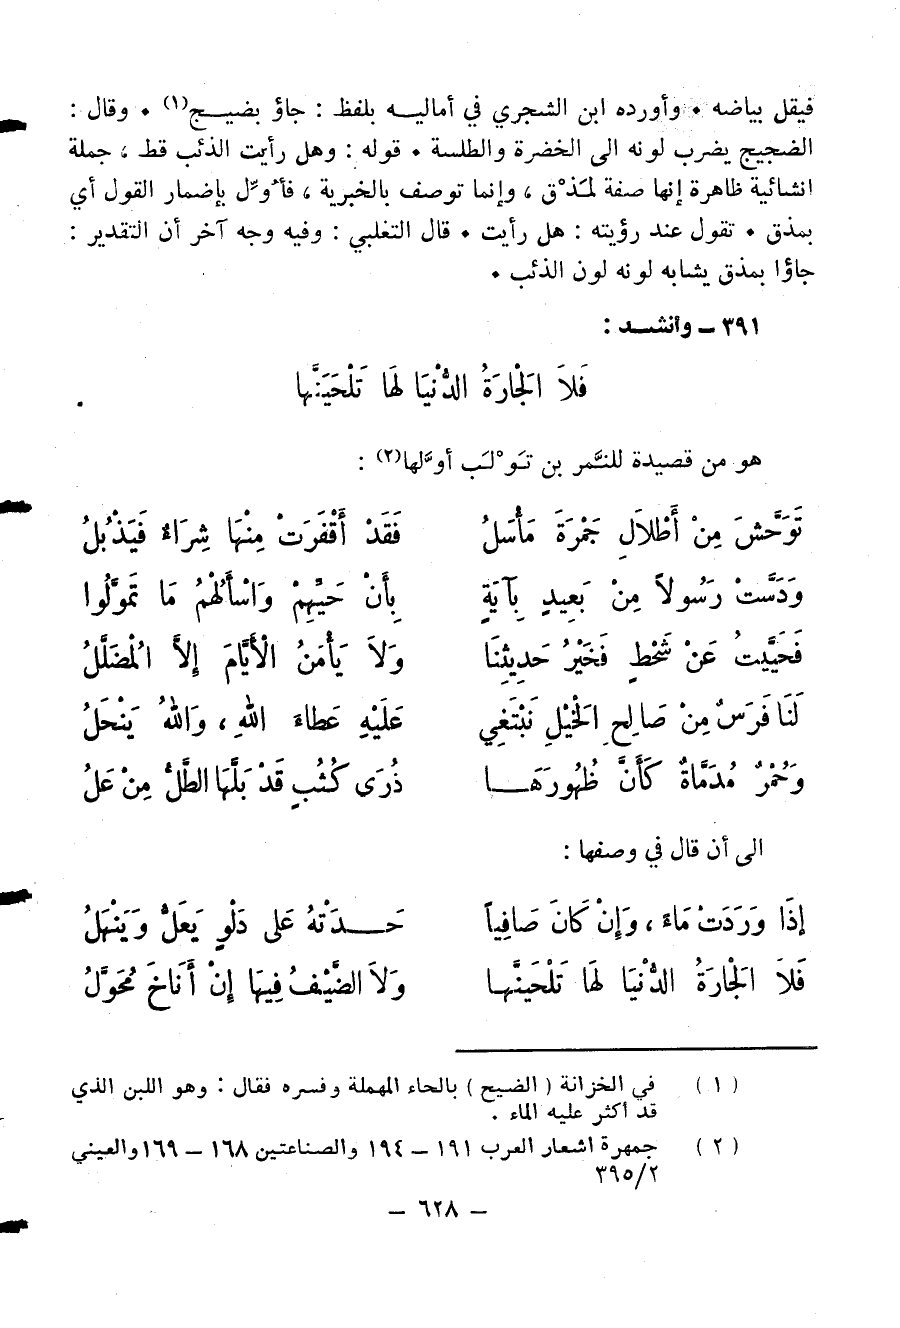 فيقل بياضه • وأورده ابن الشجري في أماليـــه بلفظ : جاؤ بضيـــج(١) • وقال :
الضجيج يضرب لونه الى الخضرة والطلسة • قوله : وهل رأيت الذئب قط ، جملة
انشائية ظاهرة إنها صفة لمَذْق ، وإنما توصف بالخبرية ، فأُوِّل بإضمار القول أي
بمذق • تقول عند رؤيته : هل رأيت • قال التغلبي : وفيه وجه آخر أن التقدير :
جاؤا بمذق يشابه لونه لون الذئب •
٣٩١ – وأنشـــد :
فَلاَ الْجَارَةُ الدُّنْيَا لَهَا تَلْحَيَنَّها
هو من قصيدة للنَّمر بن تَوْلَب أوَّلها(٢) :
تَوَحَّشَ مِنْ أَطْلاَلِ جَمْرَةَ مَأْسَلُ فَقَدْ أَقْفَرَتْ مِنْهَا شِرَاءُ فَيَذْبُلُ
وَدَسَّتْ رَسُولاً مِنْ بَعِيدٍ بِآيَةٍ بِأَنْ حَيِّهِمْ وَاسْأَلْهُمُ مَا تَمَوَّلُوا
فَحَيَّيتُ عَنْ شَحْطٍ فَخَيْرُ حَدِيثِنَا وَلاَ يَأْمَنُ الْأَيَّامَ إِلاَّ الْمُضَلَّلُ
لَنَا فَرَسٌ مِنْ صَالِحِ الْخَيْلِ نَبْتَغِي عَلَيْهِ عَطاءَ اللهِ ، وَاللهُ يَنْحَلُ
وَحُمْرٌ مُدَمَّاةٌ كَأَنَّ ظُهُورَهَـــا ذُرَى كُثُبٍ قَدْ بَلَّهَا الطَّلُّ مِنْ عَلُ
الى أن قال في وصفها :
إِذَا وَرَدَتْ مَاءً ، وَإِنْ كَانَ صَافِياً حَـــدَتْهُ عَلى دَلْوٍ يَعَلُّ وَيَنْهَلُ
فَلاَ الْجَارَةُ الدُّنْيَا لَهَا تَلْحَيَنَّهـا وَلاَ الضَّيْفُ فِيهَا إِنْ أَنَاخَ مُحَوَّلُ
( ١ ) في الخزانة ( الضيح ) بالحاء المهملة وفسره فقال : وهو اللبن الذي
قد أكثر عليه الماء .
( ٢ ) جمهرة اشعار العرب ١٩١ – ١٩٤ والصناعتين ١٦٨ – ١٦٩ والعيني
٣٩٥/٢
– ٦٢٨ –